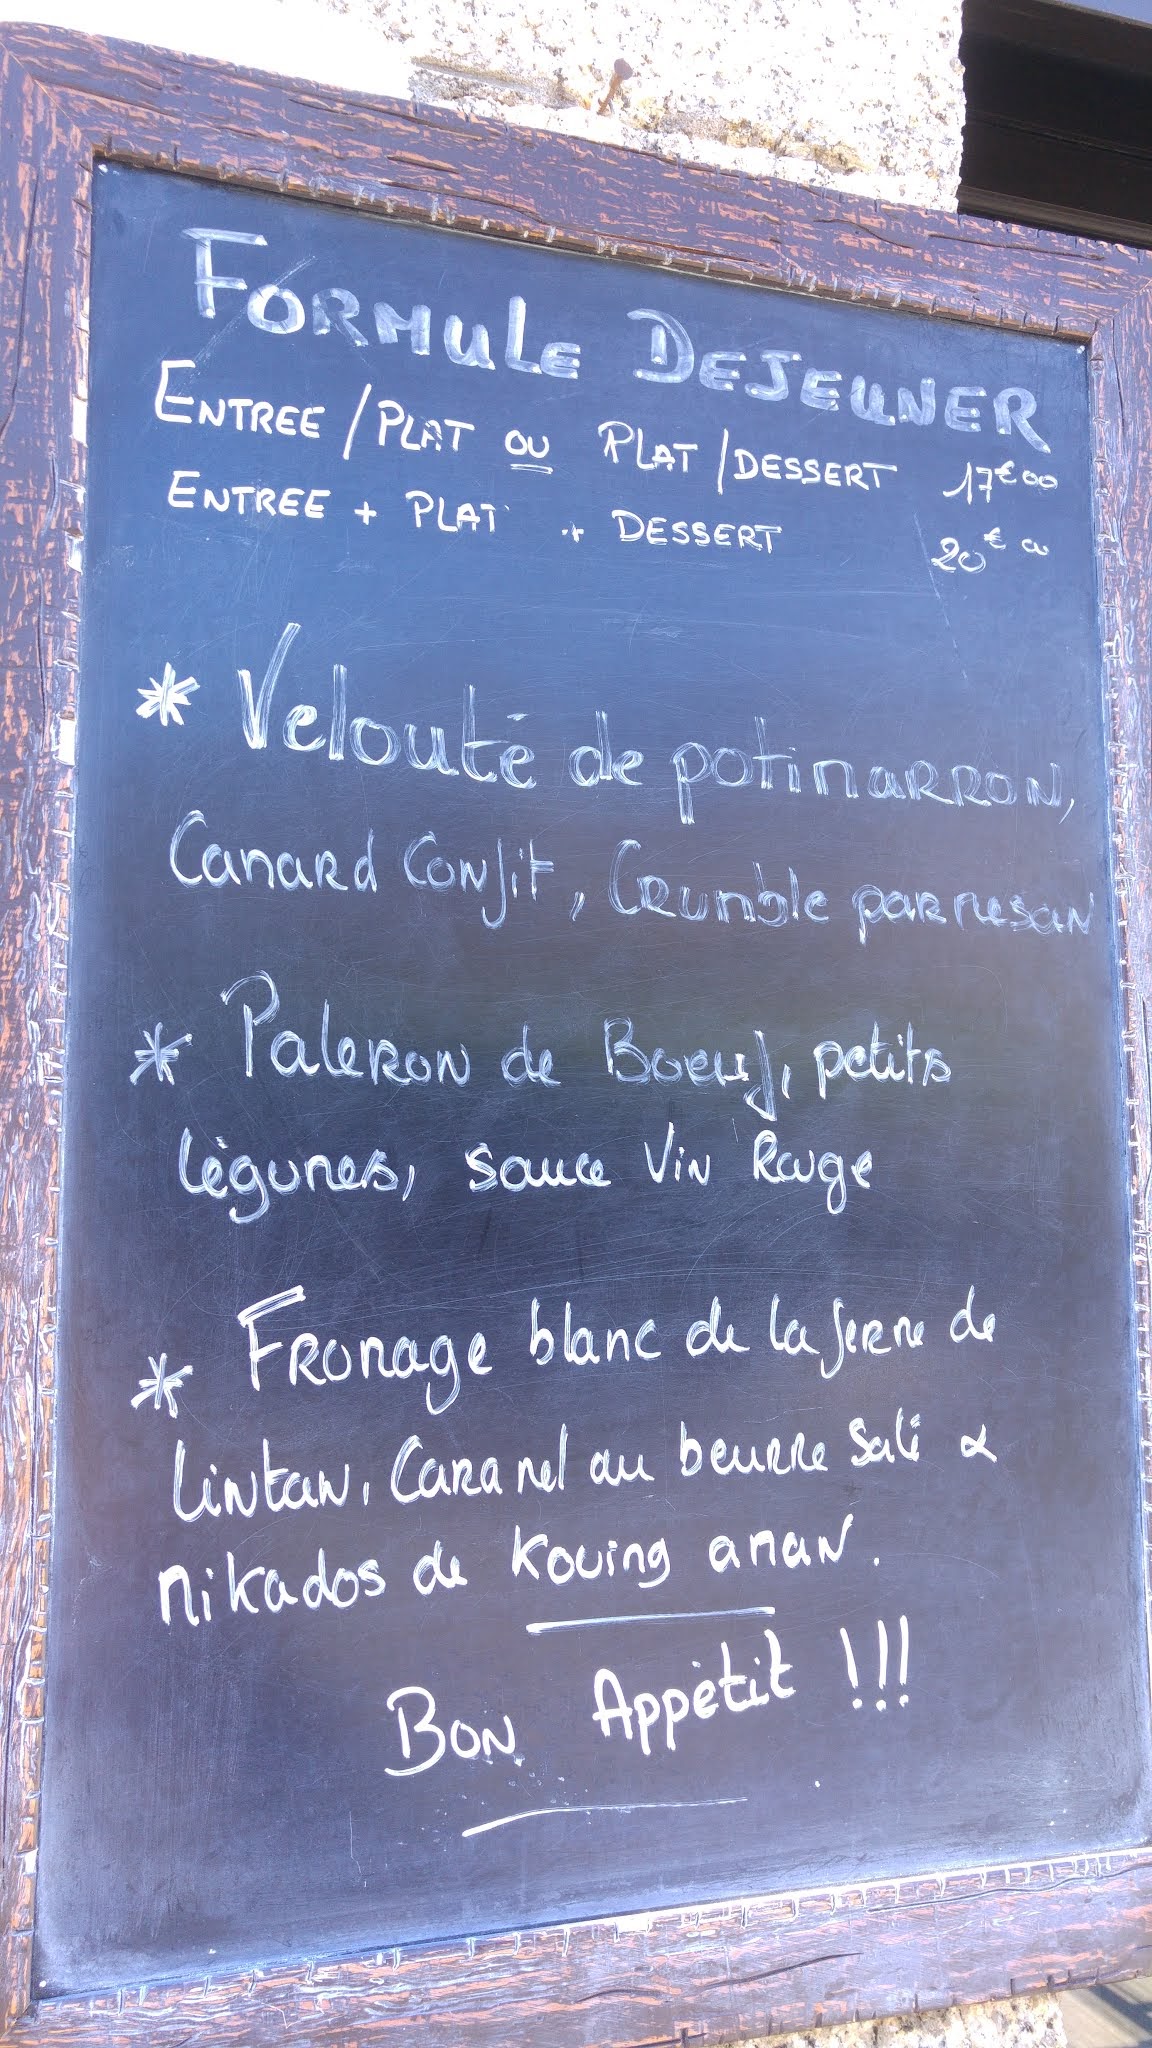 FORMULE DEJEUNER
ENTREE / PLAT OU PLAT / DESSERT 17€00
ENTREE + PLAT + DESSERT 20€00
* Velouté de potimarron,
Canard Confit, Crumble parmesan
* Paleron de Boeuf, petits
légumes, sauce Vin Rouge
* Fromage blanc de la ferme de
Lintan, Caramel au beurre salé &
mikados de Kouing aman.
Bon Appétit !!!